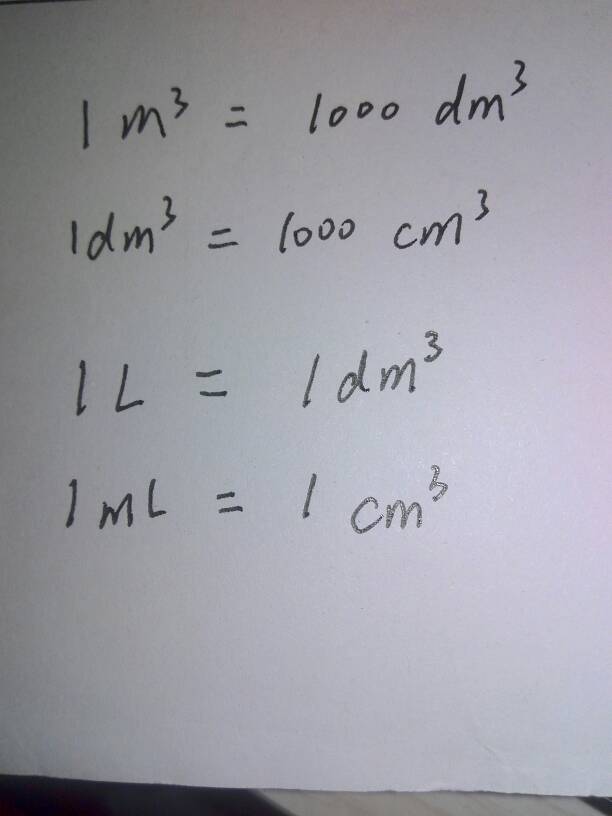 1 m³ = 1000 dm³
1dm³ = 1000 cm³
1 L = 1 dm³
1 mL = 1 cm³